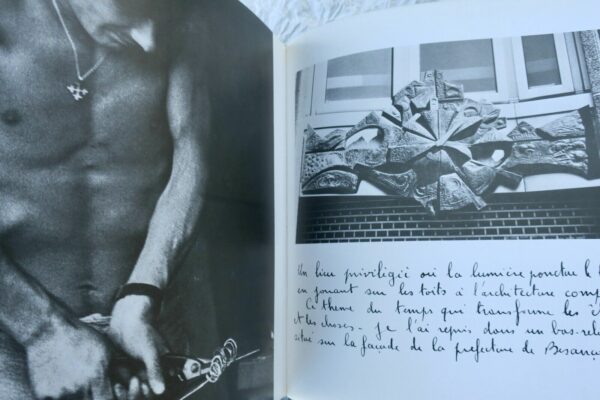 Un lieu priviligié où la lumière ponctue l
en jouant sur les toits à l'architecture comp
Ce thème du temps qui transforme les ê
et les choses. je l'ai repris dans un bas-reli
situé sur la façade de la préfecture de Besanç